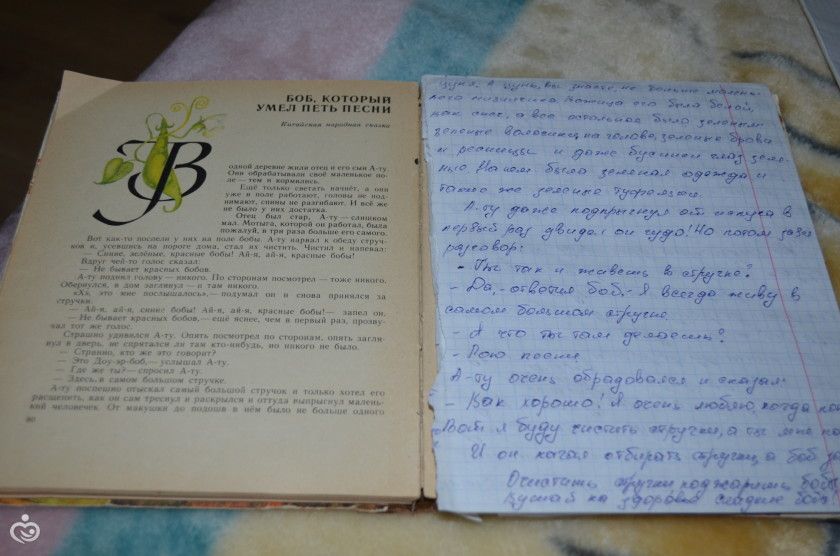 БОБ, КОТОРЫЙ
УМЕЛ ПЕТЬ ПЕСНИ
Китайская народная сказка
В
одной деревне жили отец и его сын А-ту.
Они обрабатывали своё маленькое по-
ле — тем и кормились.
Ещё только светать начнёт, а они
уже в поле работают, головы не под-
нимают, спины не разгибают. И всё же
не было у них достатка.
Отец был стар, А-ту — слишком
мал. Мотыга, которой он работал, была,
пожалуй, в три раза больше его самого.
Вот как-то поспели у них на поле бобы. А-ту нарвал к обеду струч-
ков и, усевшись на пороге дома, стал их чистить. Чистил и напевал:
— Синие, зелёные, красные бобы! Ай-я, ай-я, красные бобы!
Вдруг чей-то голос сказал:
— Не бывает красных бобов.
А-ту поднял голову — никого. По сторонам посмотрел — тоже никого.
Обернулся, в дом заглянул — и там никого.
«Хэ, это мне послышалось», — подумал он и снова принялся за
стручки.
— Ай-я, ай-я, синие бобы! Ай-я, ай-я, красные бобы! — запел он.
— Не бывает красных бобов, — ещё яснее, чем в первый раз, прозву-
чал тот же голос.
Страшно удивился А-ту. Опять посмотрел по сторонам, опять загля-
нул в дверь, не спрятался ли там кто-нибудь, но никого не было.
— Странно, кто же это говорит?
— Это Доу-эр-боб, — услышал А-ту.
— Где же ты? — спросил А-ту.
— Здесь, в самом большом стручке.
А-ту поспешно отыскал самый большой стручок и только хотел его
расщепать, как он сам треснул и раскрылся и оттуда выпрыгнул малень-
кий человечек. От макушки до подошв в нём было не больше одного
80
цуня. А цунь, вы знаете, не больше малень-
кого мизинчика. Кожица его была белой,
как снег, а все остальное было зеленым:
зеленые волосики на голове, зеленые брови
и ресницы и даже бусинки глаз зеле-
ные. На нем была зеленая одежда и
такие же зеленые туфельки.
А-ту даже подпрыгнул от испуга в
первый раз увидал он чудо! Но потом
разговор:
- Ты так и живешь в стручке?
- Да, - ответил боб. - Я всегда живу в
самом большом стручке.
- А что ты там делаешь?
- Пою песни
А-ту очень обрадовался и сказал:
- Как хорошо! Я очень люблю, когда
Вот я буду чистить стручки, а ты мне
И он начал отбирать стручки, а боб
Очистить стручки поджарить бобы
Кушай на здоровье сладкие бобы